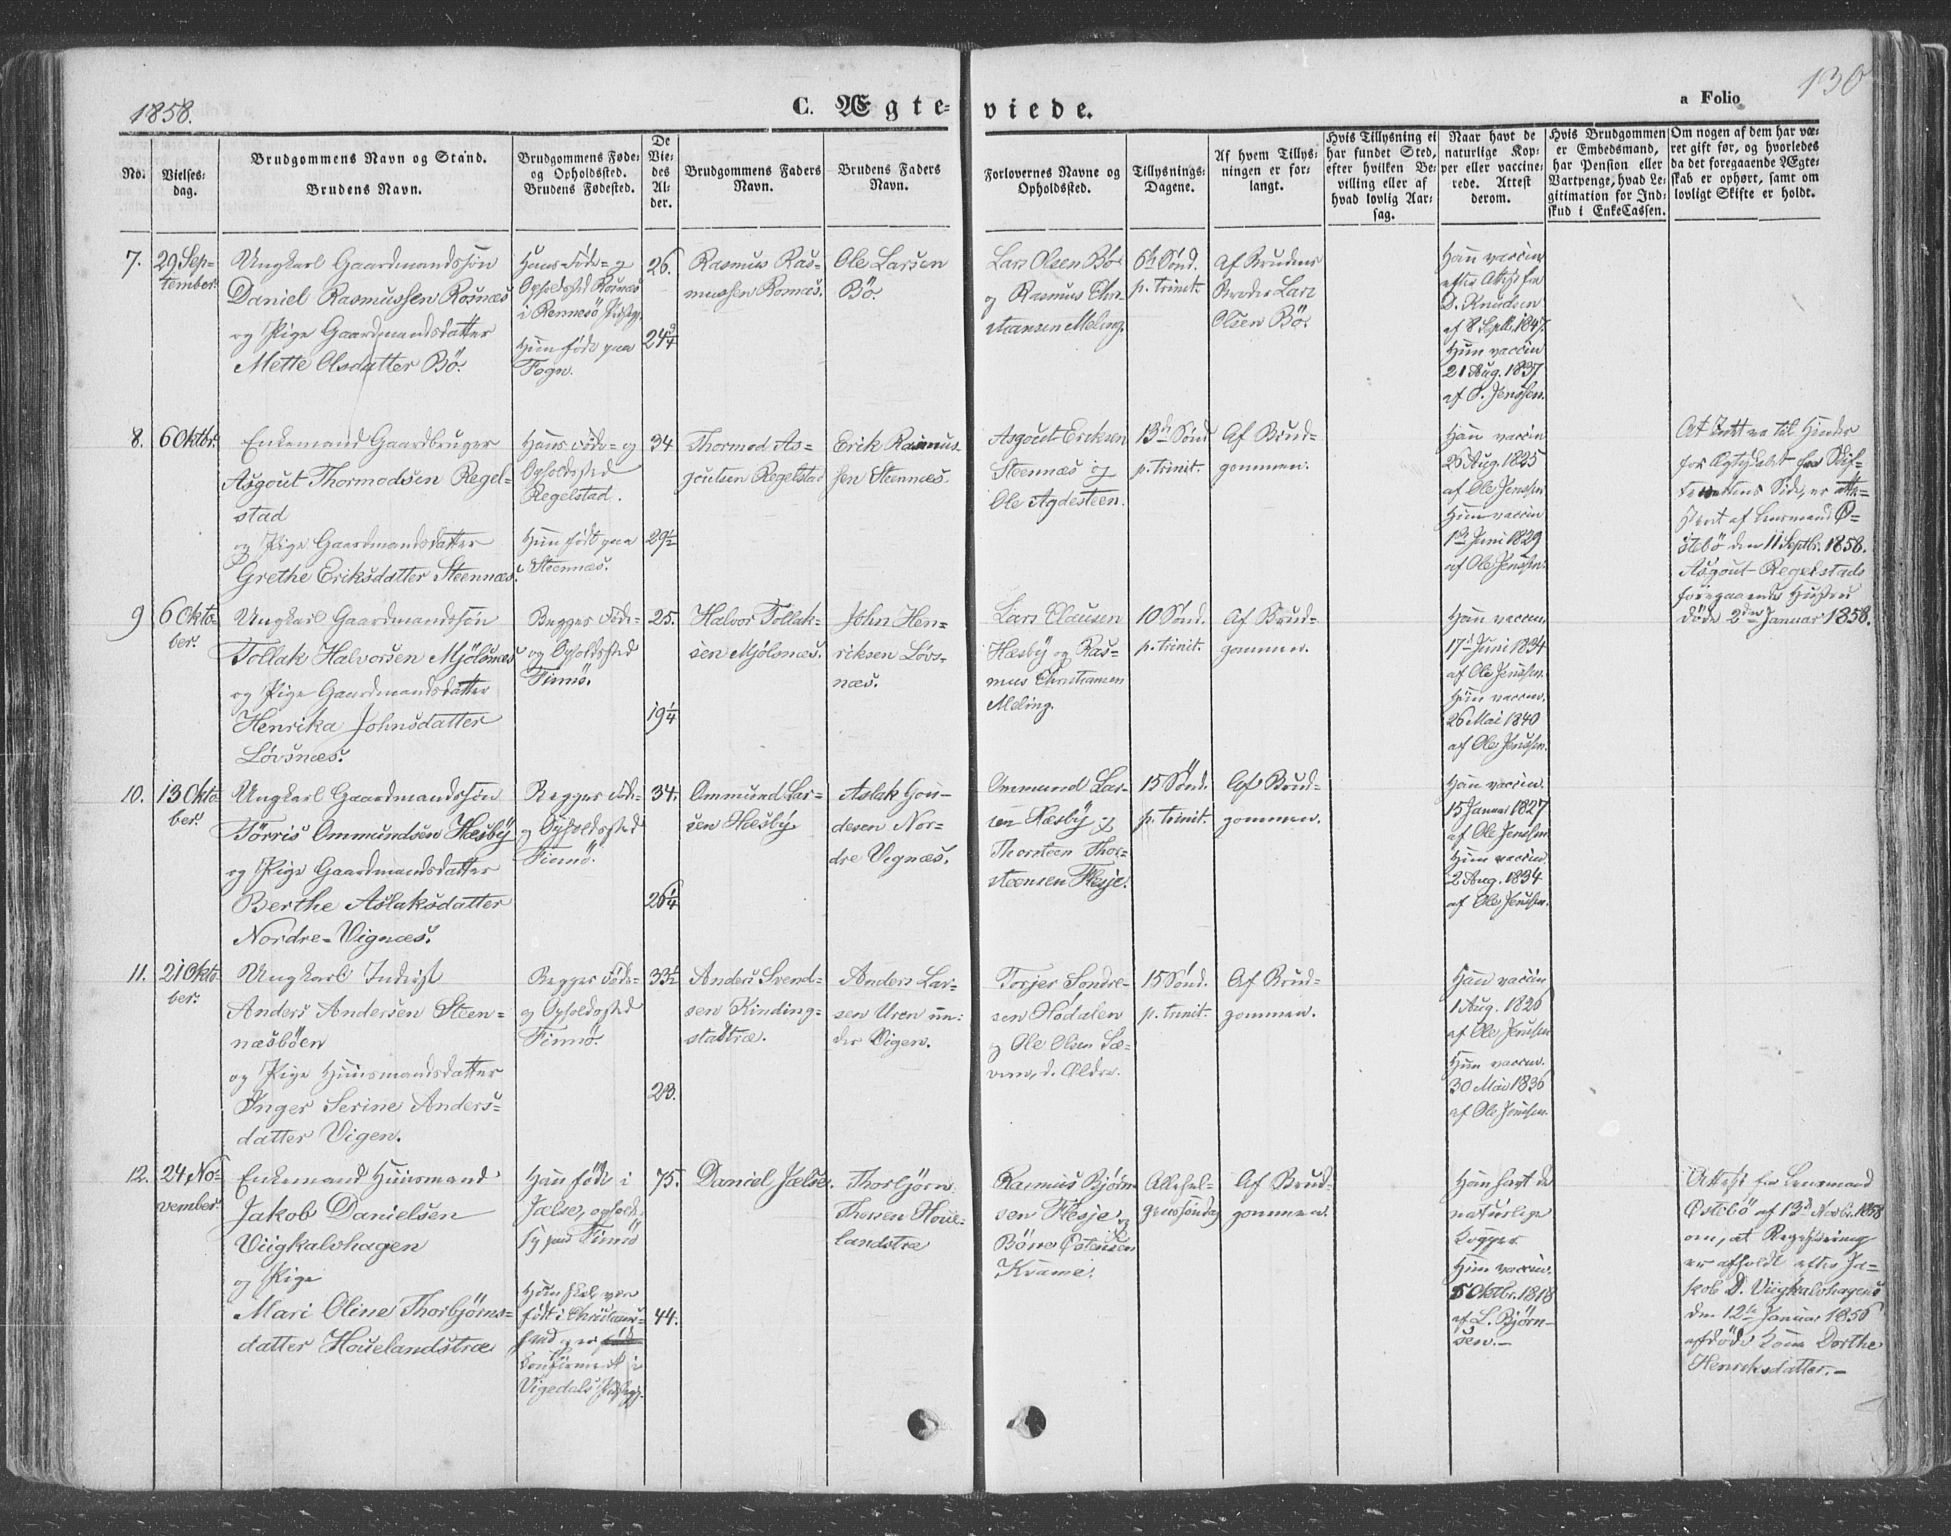 1858.
C. Ægte-
viede.
a Folio
130
No.
Vielses-
dag.
Brudgommens Navn og Stand.
Brudens Navn.
Brudgommens Føde-
og Opholdssted.
Brudens Fødested.
De
Vie-
des
Al-
der.
Brudgommens Faders
Navn.
Brudens Faders
Navn.
Forlovernes Navne og
Opholdssted.
Tillysnings-
Dagene.
Af hvem Tillys-
ningen er for-
langt.
Hvis Tillysning ei
har fundet Sted,
efter hvilken Be-
villing eller af
hvad lovlig Aar-
sag.
Naar havt de
naturlige Kop-
per eller vaccine-
rede. Attest
derom.
Hvis Brudgommen
er Embedsmand,
har Pension eller
Vartpenge, hvad Le-
gitimation for Ind-
skud i EnkeCassen.
Om nogen af dem har væ-
ret gift før, og hvorledes
da det foregaaende Ægte-
skab er ophørt, samt om
lovligt Skifte er holdt.
7.
29 Sep-
tember.
Ungkarl Gaardmandssøn
Daniel Rasmussen Rosnæs
og Pige Gaardmandsdatter
Mette Olsdatter Bö.
Hans Føde- og
Opholdsted Rosnæs
i Rennesö
Hun født paa
Fogn.
26.
24 3/4
Rasmus Ras-
mussen Rosnæs.
Ole Larsen
Bö.
Lars Olsen Bö
og Rasmus Chri-
stiansen Meling.
6te Sønd.
p. trinit.
Af Brudens
Broder Lars
Olsen Bö.
Han vaccin
efter Attest fra
D. Knudsen
af 8 Septbr. 1847.
Hun vaccin
21 Aug. 1837
af O. Jenssen.
8.
6 Oktbr.
Enkemand Gaardbruger
Asgout Thormodsen Regel-
stad
og Pige Gaardmandsdatter
Grethe Eriksdatter Steennæs.
Hans Føde- og
Opholdssted
Regelstad.
Hun født paa
Steennæs.
34
29 1/2
Thormod As-
goutsen Regelstad
Erik Rasmus-
sen Steennæs.
Asgout Eriksen
Steennæs og
Ole Agdesteen.
13de Sønd
p. trinit.
Af Brud-
gommen.
Han vaccin
25 Aug. 1825
af Ole Jenssen
Hun vaccin
1ste Juni 1829
af Ole Jenssen.
At Intet er til Hinder
for Ægteskabet fra Skif-
terettens Side, er atte-
steret af Lensmand Ø-
stebö den 11 Septbr. 1858.
Asgout Regelstads
foregaaende Hustru
døde 2den Januar 1858.
9
6 Okto-
ber.
Ungkarl Gaardmandssøn
Tollak Halvorsen Mjölsnæs
og Pige Gaardmandsdatter
Henrika Johnsdatter
Lövsnæs.
Begges Føde-
og Opholdssted
Finnö.
25.
19 1/4
Halvor Tollak-
sen Mjölsnæs.
John Hen-
riksen Lövs-
næs.
Lars Clausen
Hæsbÿ og Ras-
mus Christiansen
Meling.
10 Sønd.
p. trinit.
Af Brud-
gommen.
Han vaccin.
17de Juni 1834
af Ole Jenssen.
Hun vaccin.
26 Mai 1840
af Ole Jenssen.
10.
13 Okto-
ber.
Ungkarl Gaardmandssøn
Törris Ommundsen Hæsbÿ
og Pige Gaardmandsdatter
Berthe Aslaksdatter
Nordre-Vignæs.
Begges Føde-
og Opholdssted
Finnö.
34.
26 1/4
Ommund Lar-
sen Hæsbÿ
Aslak Gou-
desen Nor-
dre Vignæs.
Ommund Lar-
sen Hæsbÿ og
Thorsteen Thor-
steensen Flesje.
15 Sönd.
p. trinit.
Af Brud-
gommen.
Han vaccin.
15 Januar 1827
af Ole Jenssen
Hun vaccin
2 Aug. 1834
af Ole Jenssen.
11.
21 Okto-
ber.
Ungkarl Inderst
Anders Andersen Steen-
næsbøen
og Pige Huusmandsdatter
Inger Serine Anders-
datter Vigen.
Begges Føde-
og Opholdssted
Finnö.
33 1/2
23.
Anders Svend-
sen Kinding-
stadtræ.
Anders Lar-
sen Uren un-
der Vigen.
Torjer Sondre-
sen Hödalen
og Ole Olsen Sæ-
vem, d. Ældre.
15 Sønd.
p. trinit.
Af Brud-
gommen.
Han vaccin
1 Aug. 1826
af Ole Jenssen
Hun vaccin.
30 Mai 1836
af Ole Jenssen.
12.
24 No-
vember.
Enkemand Huusmand
Jakob Danielsen
Viigkalvhagen
og Pige
Mari Oline Thorbjörns-
datter Houelandstræ
Han født i
Jælse,
Finnö
Hun skal være
født i Christian-
sand og er
konfirmeret i
Vigedals
75.
44.
Daniel Jælse.
Thorbjørn
Thosen Houe-
landstræ
Rasmus Bjørn-
sen Flesje og
Böne Østensen
Krame.
Allehel-
genssöndag
Af Brud-
gommen.
Han havt de
naturlige
Kopper
Hun vaccin.
5 Oktbr. 1818
af L. Bjørn-
sen.-
Attest fra Lensmand
Østebö af 13de Novbr. 1858
om, at Registrering
er afholdt efter Ja-
kob D. Viigkalvhagens
den 12te Januar 1856
afdøde Kone Dorthe
Henriksdatter.-